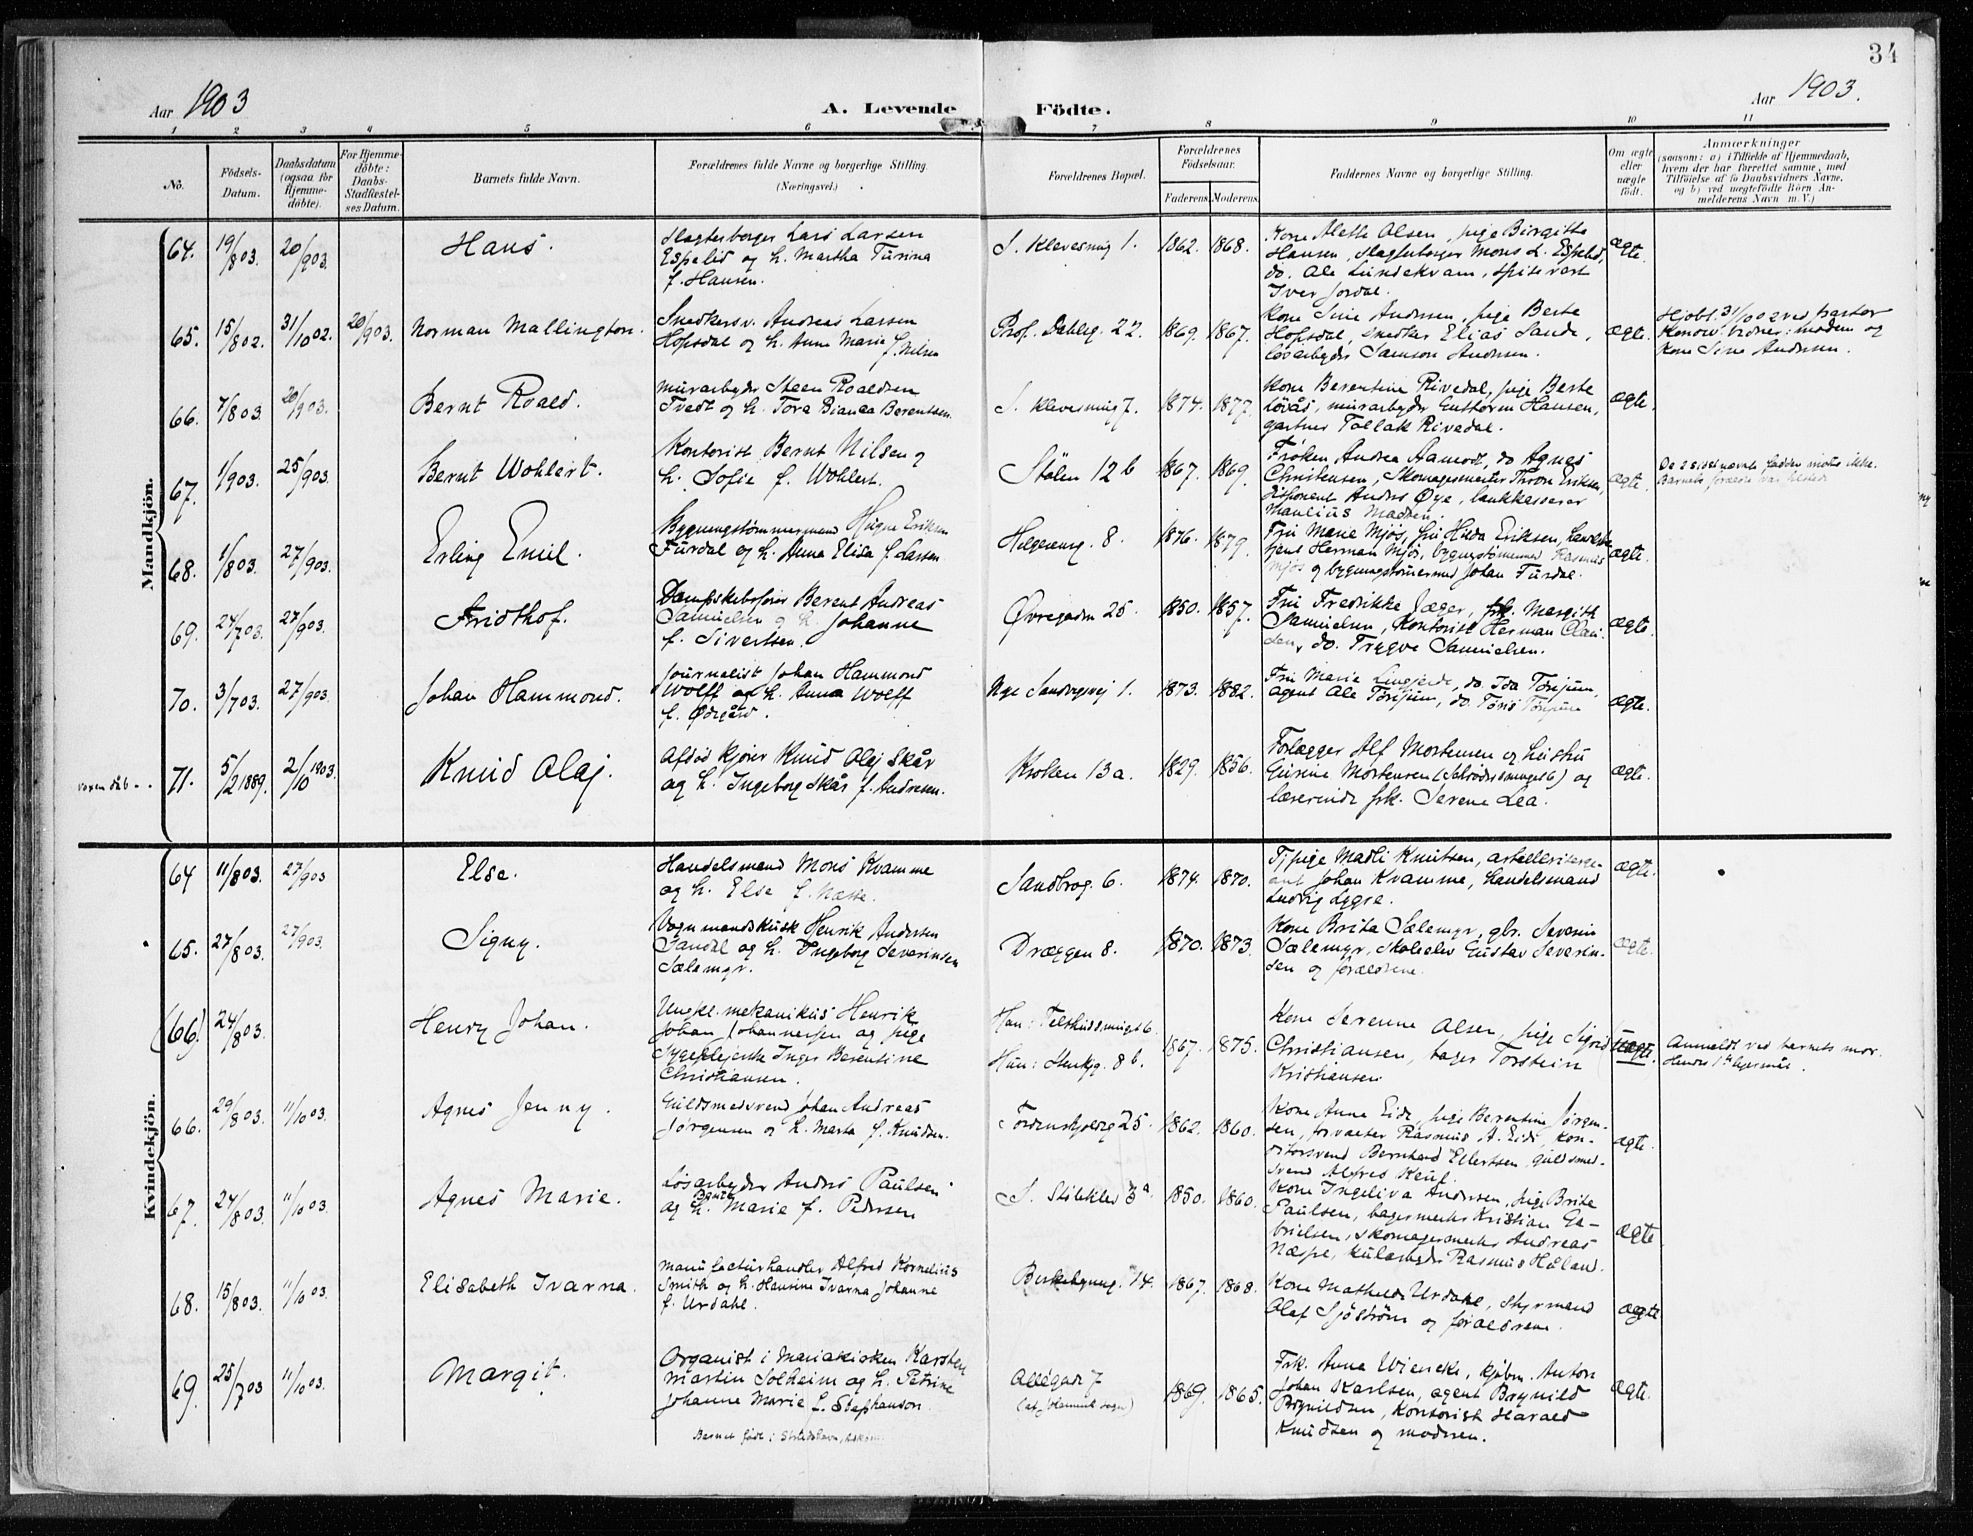 34
Aar 1903
A. Levende Födte.
Aar 1903.
1 2 3 4 5 6 7 8 9 10 11
No.
Födsels-
Datum.
Daabsdatum
(ogsaa for
Hjemme-
döbte).
For Hjemme-
döbte:
Daabs-
Stadfæstel-
ses Datum.
Barnets fulde Navn.
Forældrenes fulde Navne og borgerlige Stilling.
(Næringsvei.)
Forældrenes Bopæl.
Forældrenes
Födselsaar.
Faderens. Moderens.
Faddernes Navne og borgerlige Stilling.
Om ægte
eller
uægte
födt.
Anmærkninger
(saasom: a) i Tilfælde af Hjemmedaab,
hvem der har forrettet samme, med
Tilföielse af to Daabsvidners Navne,
og b) ved uægtefödte Börn An-
melderens Navn m. V.)
Mandkjön.
64. 19/803. 20/903. Hans.
Slagterborger Lars Larsen
Espelid og h. Martha Turina
f. Hansen.
S. Klevesmug 1. 1862. 1868.
Kone Alette Olsen, pige Birgitte
Hansen, Slagterborger Mons L. Espelid,
do. Ole Lundekvam, spisevært
Iver Jordal.
ægte.
65. 15/802. 31/1002. 20/903. Norman Mallington.
Snedkersv. Andreas Larsen
Hopsdal og h. Anne Marie f. Nilsen
Prof. Dahlsg. 22. 1869. 1867.
Kone Sine Andersen, pige Berte
Hopsdal, snedker Elias Sande,
løsarbejder Samson Andersen.
ægte.
Hjdbt. 31/10 02 ved pastor
Konow. Vidner: moderen og
Kone Sine Andersen.
66. 7/803. 20/903. Bernt Roald.
Murarbejder Steen Roaldsen
Tvedt og h. Tora Bianca Berentsen.
S. Klevesmug 7. 1874. 1877.
Kone Berentine Rivedal, pige Berte
Løvås, murarbejder Guttorm Hansen,
gartner Tollak Rivedal.
ægte.
67. 1/903. 25/903. Bernt Wohlert.
Kontorist Bernt Nilsen og
h. Sofie f. Wohlert.
Stølen 12 b 1867. 1869.
Frøken Andrea Aamodt, do Agnes
Christensen, Skomagermester Thron Eriksen,
disponent Anders Øye, bankkasserer
Manlius Madsen.
ægte.
De 2 sidst nævnte faddere møtte ikke.
Barnets forældre var tilstede
68. 1/803. 27/903. Erling Emil.
Bygningstømmermand Mogne Eriksen
Furdal og h. Anna Elisa f. Larsen
Helgesensg. 8. 1876. 1879.
Fru Marie Mjøs, fru Hilda Eriksen,
Herman Mjøs, bygningstømmermand Rasmus
Mjøs og bygningstømmermand Johan Furdal.
ægte.
69. 24/703. 27/903. Fridthof.
Dampskibsfører Berent Andreas
Samuelsen og h. Johanne
f. Sivertsen.
Øvregaden 25. 1850. 1857.
Fru Fredrikke Jæger, frk. Margith
Samuelsen, Kontorist Herman Clau-
sen, do. Trygve Samuelsen.
ægte.
70. 3/703. 27/903. Johan Hammond.
Journalist Johan Hammond
Wolff og h. Anna Wolff
f. Ødegård.
Nye Sandvigsvej 1. 1873. 1882.
Fru Marie do. Ida Torjum,
agent Ole Torjum, do.
ægte.
voxen dåb 71. 5/2 1889. 2/10 1903. Knud Olaj.
Afdød kjører Knud Olaj Skår
og h. Ingeborg Skår f. Andresen.
Kroken 13 a. 1829. 1856.
Forlægger Alf Mortensen og hustru
Gurine Mortensen (Schrødersmuget 6) og
lærerinde frk. Serene Lea.
ægte.
Kvindekjön.
64 11/803. 27/903 Else.
Handelsmand Mons Kvamme
og h. Else f. Næsse.
Sandbrog. 6. 1874. 1870.
Tj.pige Madli Knutsen, artillerisersje-
ant Johan Kvamme, handelsmand
Ludvig Lygre.
ægte.
65. 27/803. 27/903. Signy.
Vognmandskusk Henrik Andersen
Sandal og h. Ingeborg Severinsen
Sælemyr.
Dræggen 8. 1870. 1873.
Kone Brita Sælemyr, gbr. Severin
Sælemyr, skoleelev Gustav Severin-
sen og forældrene.
ægte.
(66). 24/803. Henry Johan.
Ungk. mekanikus Henrik
Johan Johannessen og pige
Sygeplejerske Inger Berentine
Christiansen.
Han: 6.
Hun: 8 b. 1867. 1875.
Kone Serenne Olsen, pige Sigrid
Christiansen, bager Torstein
Kristiansen
uægte.
Anmeldt ved barnets mor.
Hendes 1ste lejermål.
66. 29/803. 11/1003. Agnes Jenny.
Guldsmedsvend Johan Andreas
Jørgensen og h. Marta f. Knudsen.
Tordenskjoldsg 25. 1862. 1860.
Kone Anne Eide, pige Berentine Jørgen-
sen, forvalter Rasmus A. Eide, kon-
ditorsvend Bernhard Ellertsen, guldsmed-
svend Alfred Keul.
ægte.
67. 24/803. 11/1003. Agnes Marie.
Løsarbejder Anders Paulsen
og h. Marie f. Pedersen
S. Støleklev 3a. 1850. 1860.
Kone Ingeliva Andersen, pige Brite
Paulsen, bagermester Kristian Ga-
brielsen, skomagermester Andreas
Næspe, kularbejder Rasmus Håland.
ægte
68. 15/803. 11/1003. Elisabeth Ivarna.
Manufacturhandler Alfred Kornelius
Smith og h. Hansine Ivarna Johanne
f. Urdahl.
14. 1867. 1868.
Kone Mathilde Urdahl, styrmand
Olaf Sjöström og forældrene.
ægte
69. 25/703 11/1003. Margit.
Organist i Mariakirken Karsten
Martin Solheim og h. Petrine
Johanne Marie f. Stephanson.
Barnet født i
Allégade 7
(af Johannes sogn) 1869. 1865.
Frk. Anna Wiencke, kjøbm. Anton
Johan Karlsen, agent Brynild
Brynildsen, Kontorist Harald
Knudsen og moderen.
ægte.